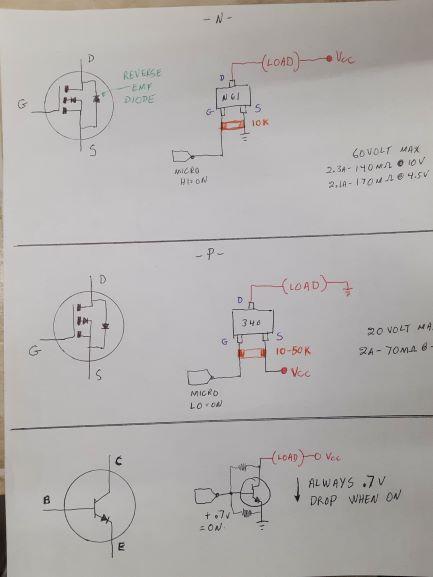 - N -
D
G
S
REVERSE
EMF
DIODE
(LOAD) Vcc
D
N61
G S
10K
MICRO
HI=ON
60 VOLT MAX
2.3A - 140MΩ @ 10V
2.1A - 170MΩ @ 4.5V
- P -
D
G
S
(LOAD)
D
340
G S
10-50K
Vcc
MICRO
LO=ON
20 VOLT MA
2A - 70MΩ @
C
B
E
(LOAD) Vcc
+ .7V
= ON
ALWAYS .7V
DROP WHEN ON